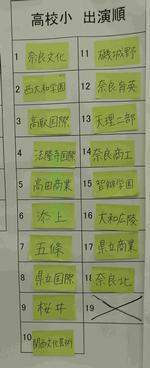 高校小 出演順
1 奈良文化
2 西大和学園
3 高取国際
4 法隆寺国際
5 高田商業
6 添上
7 五條
8 県立国際
9 桜井
10 関西文化芸術
11 磯城野
12 奈良育英
13 天理二部
14 奈良商工
15 智辯学園
16 大和広陵
17 県立商業
18 奈良北
19